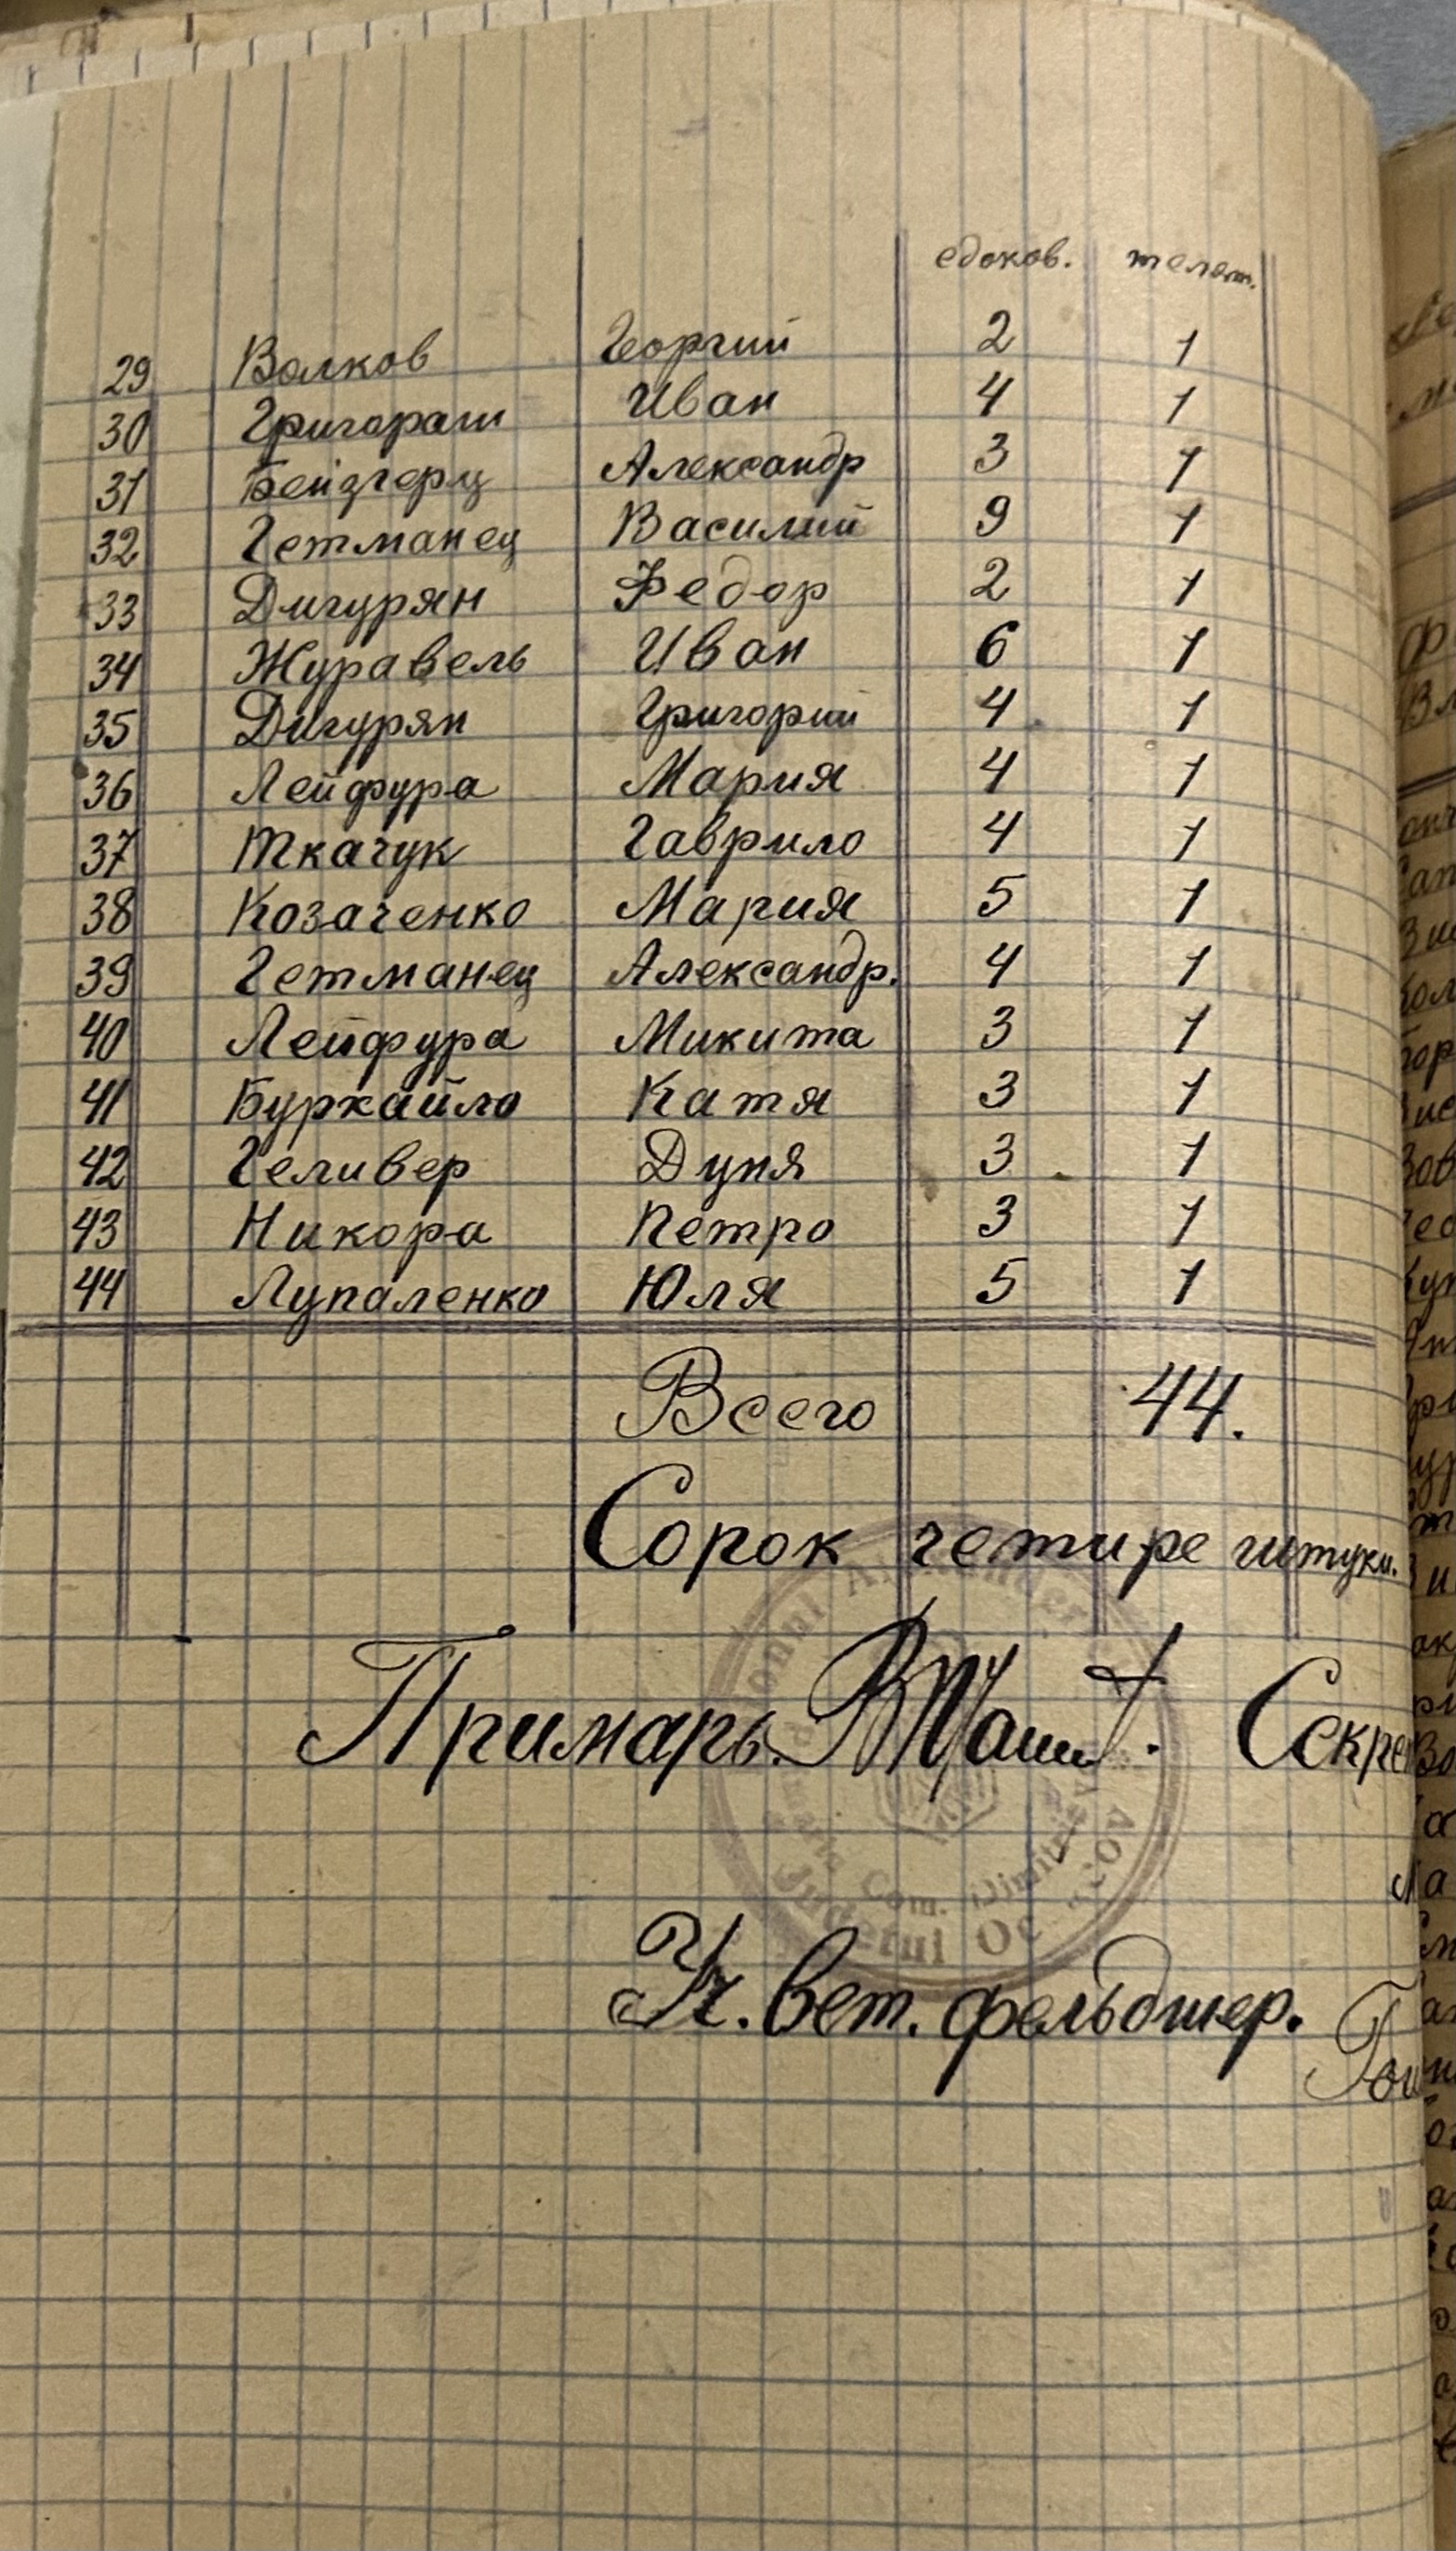 едоков. телят.
29 Волков Георгий 2 1
30 Григораш Иван 4 1
31 Бейзгерц Александр 3 1
32 Гетманец Василий 9 1
33 Дигурян Федор 2 1
34 Журавель Иван 6 1
35 Дигурян Григорий 4 1
36 Лейфура Мария 4 1
37 Ткачук Гаврило 4 1
38 Козаченко Мария 5 1
39 Гетманец Александр. 4 1
40 Лейфура Микита 3 1
41 Буркайло Катя 3 1
42 Геливер Дуня 3 1
43 Никора Петро 3 1
44 Лупаленко Юля 5 1
Всего 44.
Сорок четире штуки.
Примарь. Секре
Уч. вет. фельдшер.
Com.
Judetul